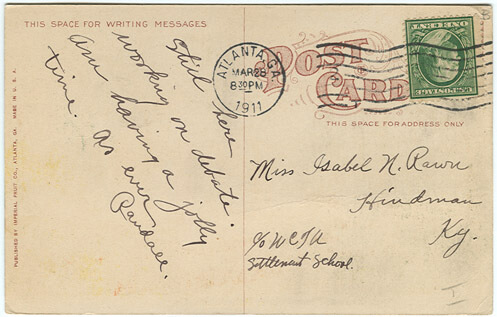 THIS SPACE FOR WRITING MESSAGES
Still here
am working on debate.
am having a jolly
time. As ever
Randall.
PUBLISHED BY IMPERIAL FRUIT CO., ATLANTA, GA. MADE IN U.S.A.
ATLANTA, GA.
MAR 28
8 30 PM
1911
POST
CARD
THIS SPACE FOR ADDRESS ONLY
Miss Isabel N. Rawn
Hindman
Ky.
c/o WCTU
Settlement School.
I